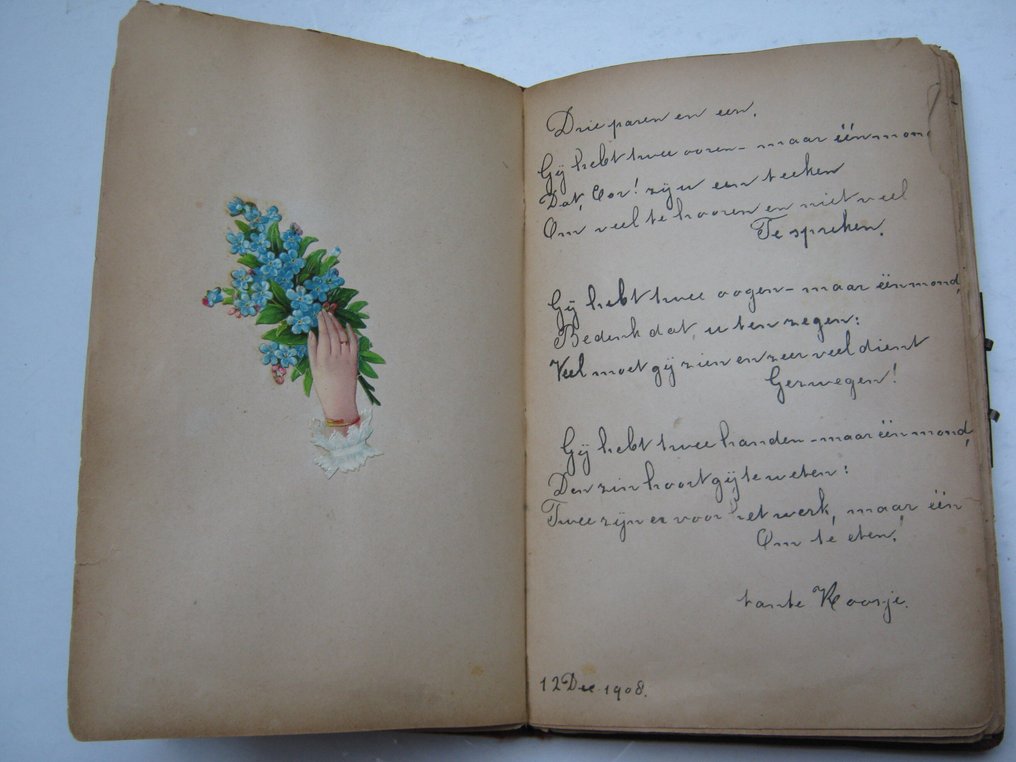 Drie paren en een.
Gij hebt twee ooren – maar één mond
Dat, Cor! zij u een teeken
Om veel te hooren en niet veel
Te spreken.
Gij hebt twee oogen – maar één mond,
Bedenk dat, u ten zegen:
Veel moet gij zien en zeer veel dient
Gezwegen!
Gij hebt twee handen – maar één mond,
Den zin hoort gij te weten:
Twee zijn er voor het werk, maar één
Om te eten!
tante Koosje.
12 Dec 1908.